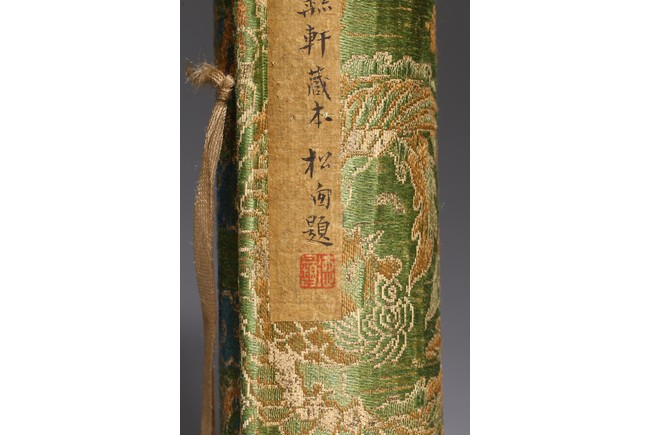 軒藏本 松窗題